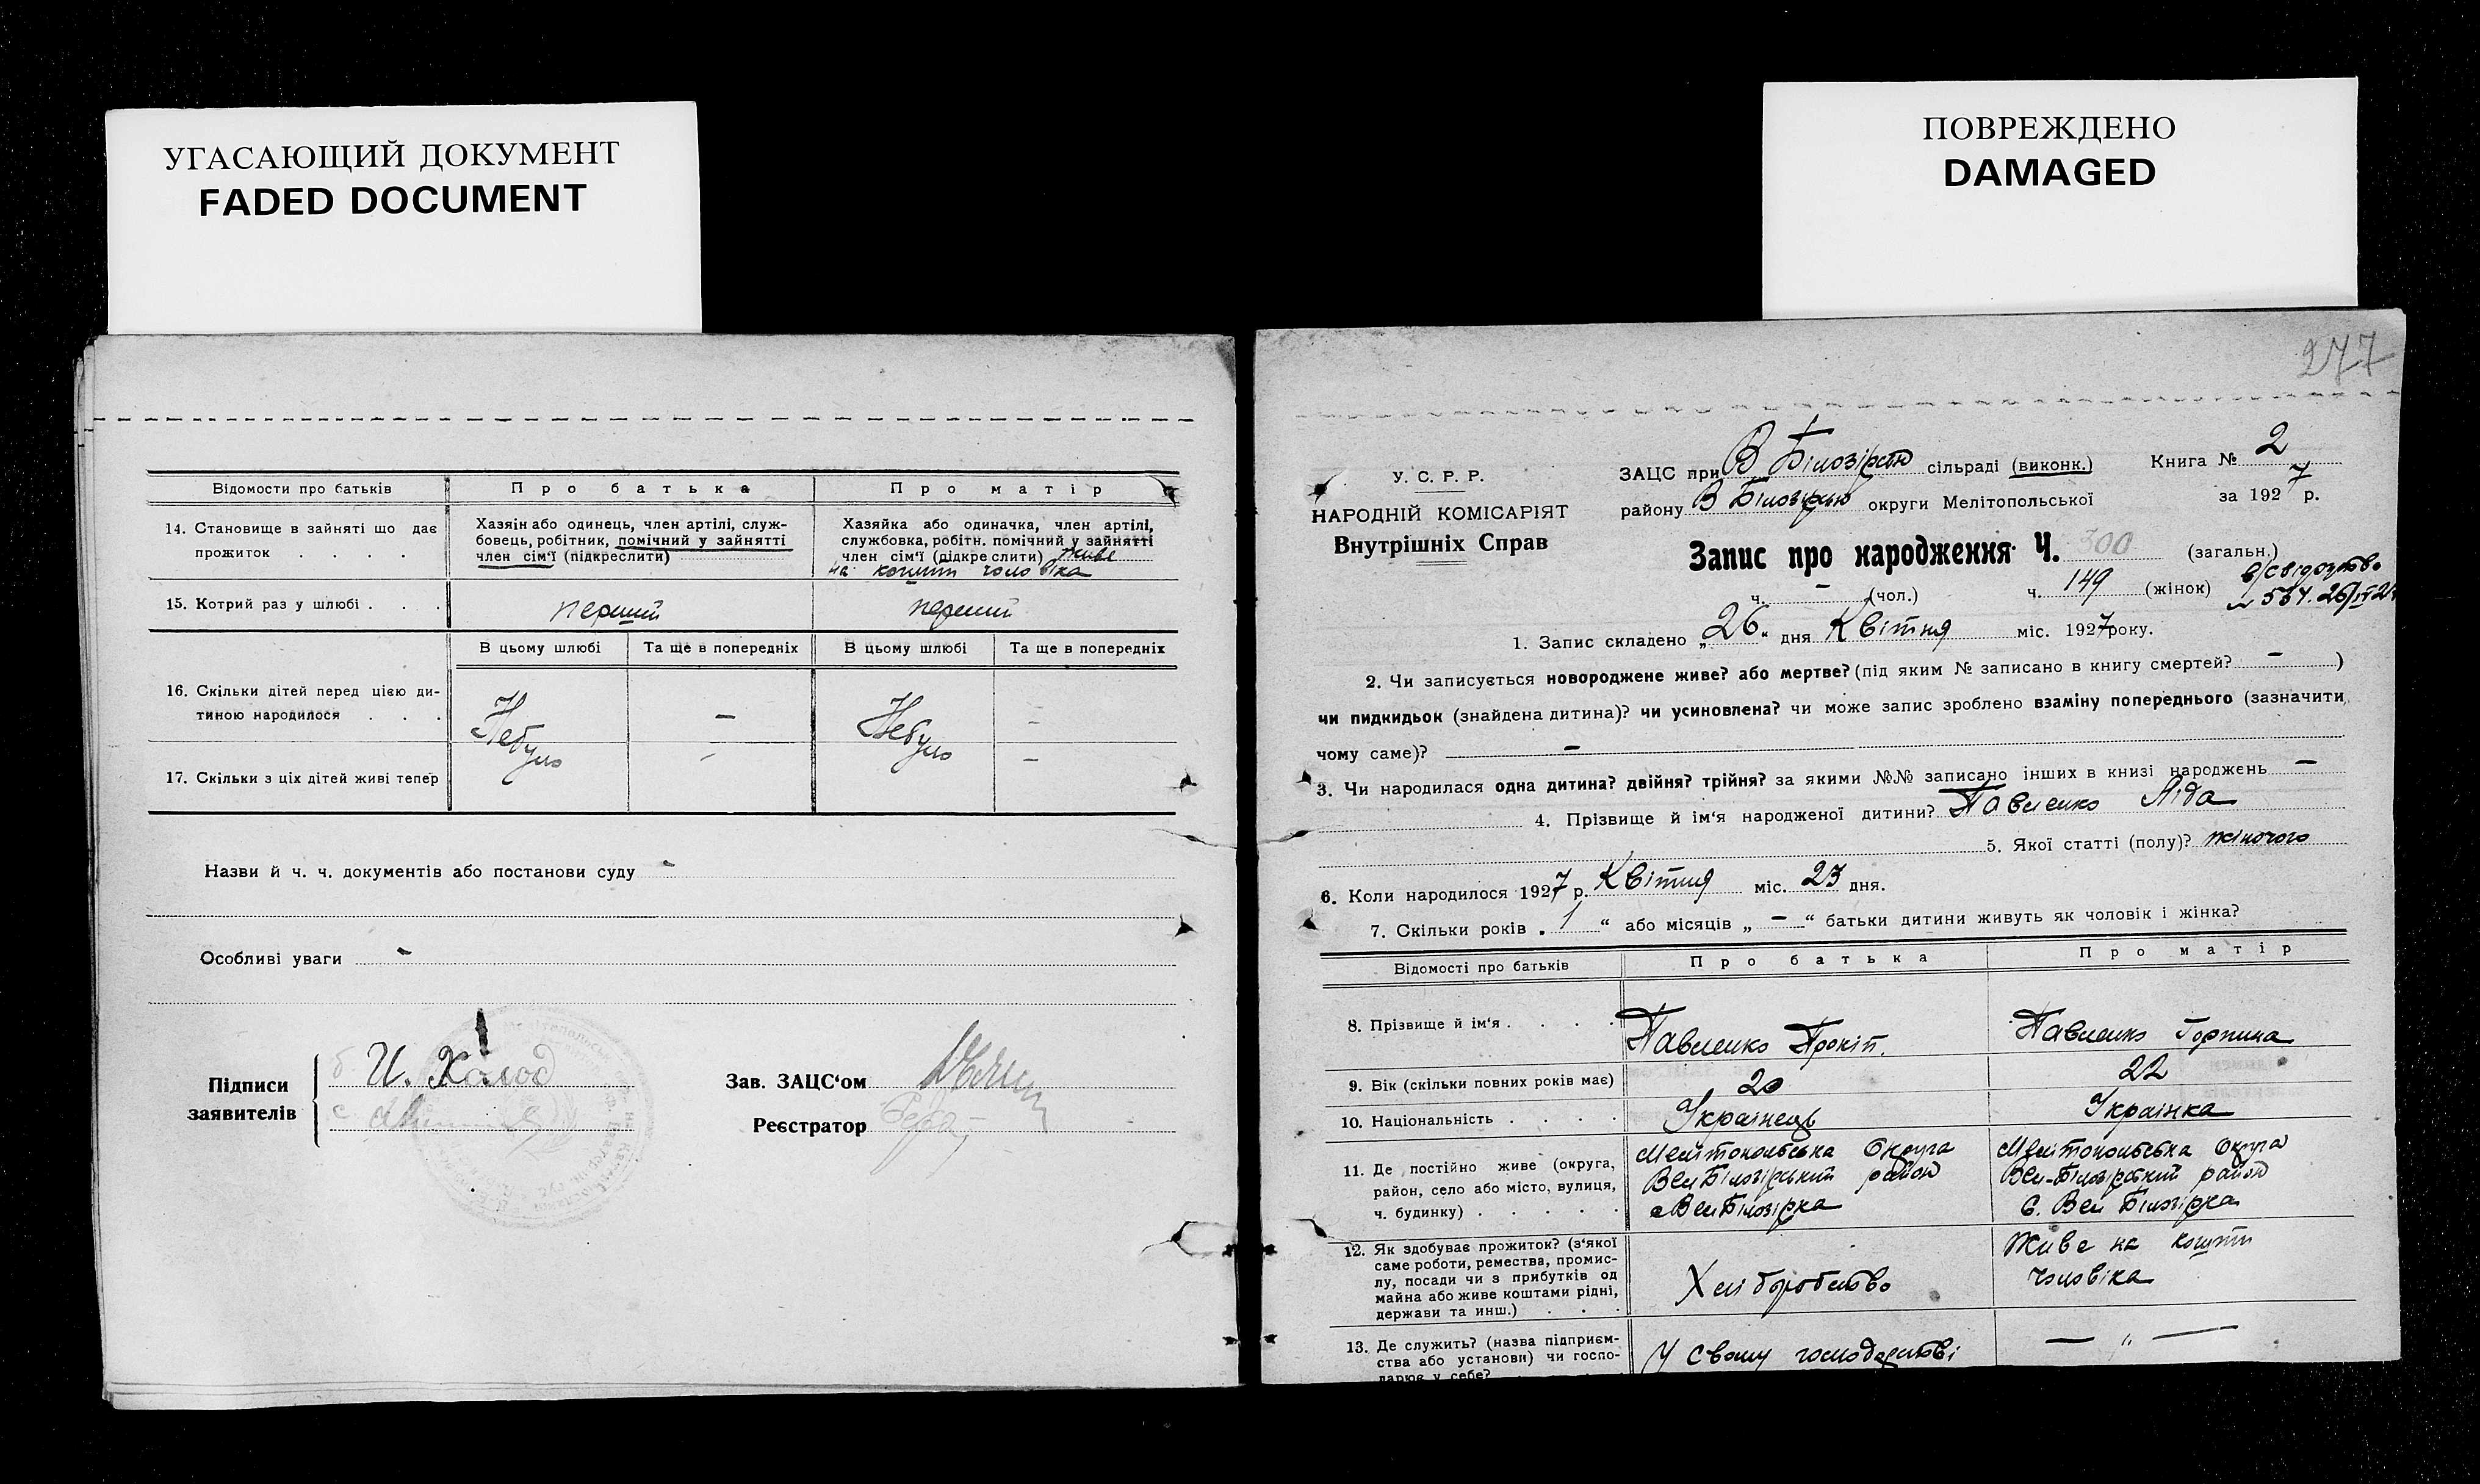 УГАСАЮЩИЙ ДОКУМЕНТ
FADED DOCUMENT
ПОВРЕЖДЕНО
DAMAGED
Відомости про батьків
Про батька
Про матір
14. Становище в зайняті що дає прожиток . . . .
Хазяін або одинець, член артілі, служ-
бовець, робітник, помічний у зайнятті
член сім'ї (підкреслити)
Хазяйка або одиначка, член артілі,
службовка, робітн. помічний у зайнятті
член сім'ї (підкреслити) живе
на кошти чоловіка
15. Котрий раз у шлюбі . . .
перший
перший
В цьому шлюбі
Та ще в попередніх
В цьому шлюбі
Та ще в попередніх
16. Скільки дітей перед цією ди-
тиною народилося . . .
Небуло
—
Небуло
—
17. Скільки з ціх дітей живі тепер
—
—
Назви й ч. ч. документів або постанови суду -
Особливі уваги -
Підписи
заявителів
И. Холод
Зав. ЗАЦС'ом
Реєстратор
277
У. С. Р. Р.
НАРОДНІЙ КОМІСАРІЯТ
Внутрішніх Справ
ЗАЦС при В Білозірськ сільраді (виконк.)
Книга № 2
району В Білозірськ округи Мелітопольської
за 1927 р.
Запис про народження Ч. 300 (загальн.)
ч. — (чол.)
ч. 149 (жінок)
1. Запис складено „26" дня Квітня міс. 1927 року.
2. Чи записується новороджене живе? або мертве? (під яким № записано в книгу смертей? — )
чи пидкидьок (знайдена дитина)? чи усиновлена? чи може запис зроблено взаміну попереднього (зазначити
чому саме)? —
3. Чи народилася одна дитина? двійня? трійня? за якими №№ записано інших в книзі народжень —
4. Прізвище й ім'я народженої дитини? Павленко Ліда
5. Якої статті (полу)? жіночого
6. Коли народилося 1927 р. Квітня міс. 23 дня.
7. Скільки років „ 1 " або місяців „ — " батьки дитини живуть як чоловік і жінка?
Відомості про батьків
Про батька
Про матір
8. Прізвище й ім'я . . . .
Павленко Прокіп.
Павленко Горпина
9. Вік (скільки повних років має)
20
22
10. Національність . . . .
Українець
Українка
11. Де постійно живе (округа,
район, село або місто, вулиця,
ч. будинку) . . . . .
Мелітопольська Округа
Вел Білозірський район
с Вел Білозірка
Мелітопольська Округа
Вел-Білозірський район
С. Вел Білозірка
12. Як здобуває прожиток? (з'якої
саме роботи, ремества, промис-
лу, посади чи з прибутків од
майна або живе коштами рідні,
держави та инш.) . . .
Хліборобство
Живе на кошти
чоловіка
13. Де служить? (назва підприєм-
ства або установи) чи госпо-
дарює у себе?
У своєму господарстві
— „ —